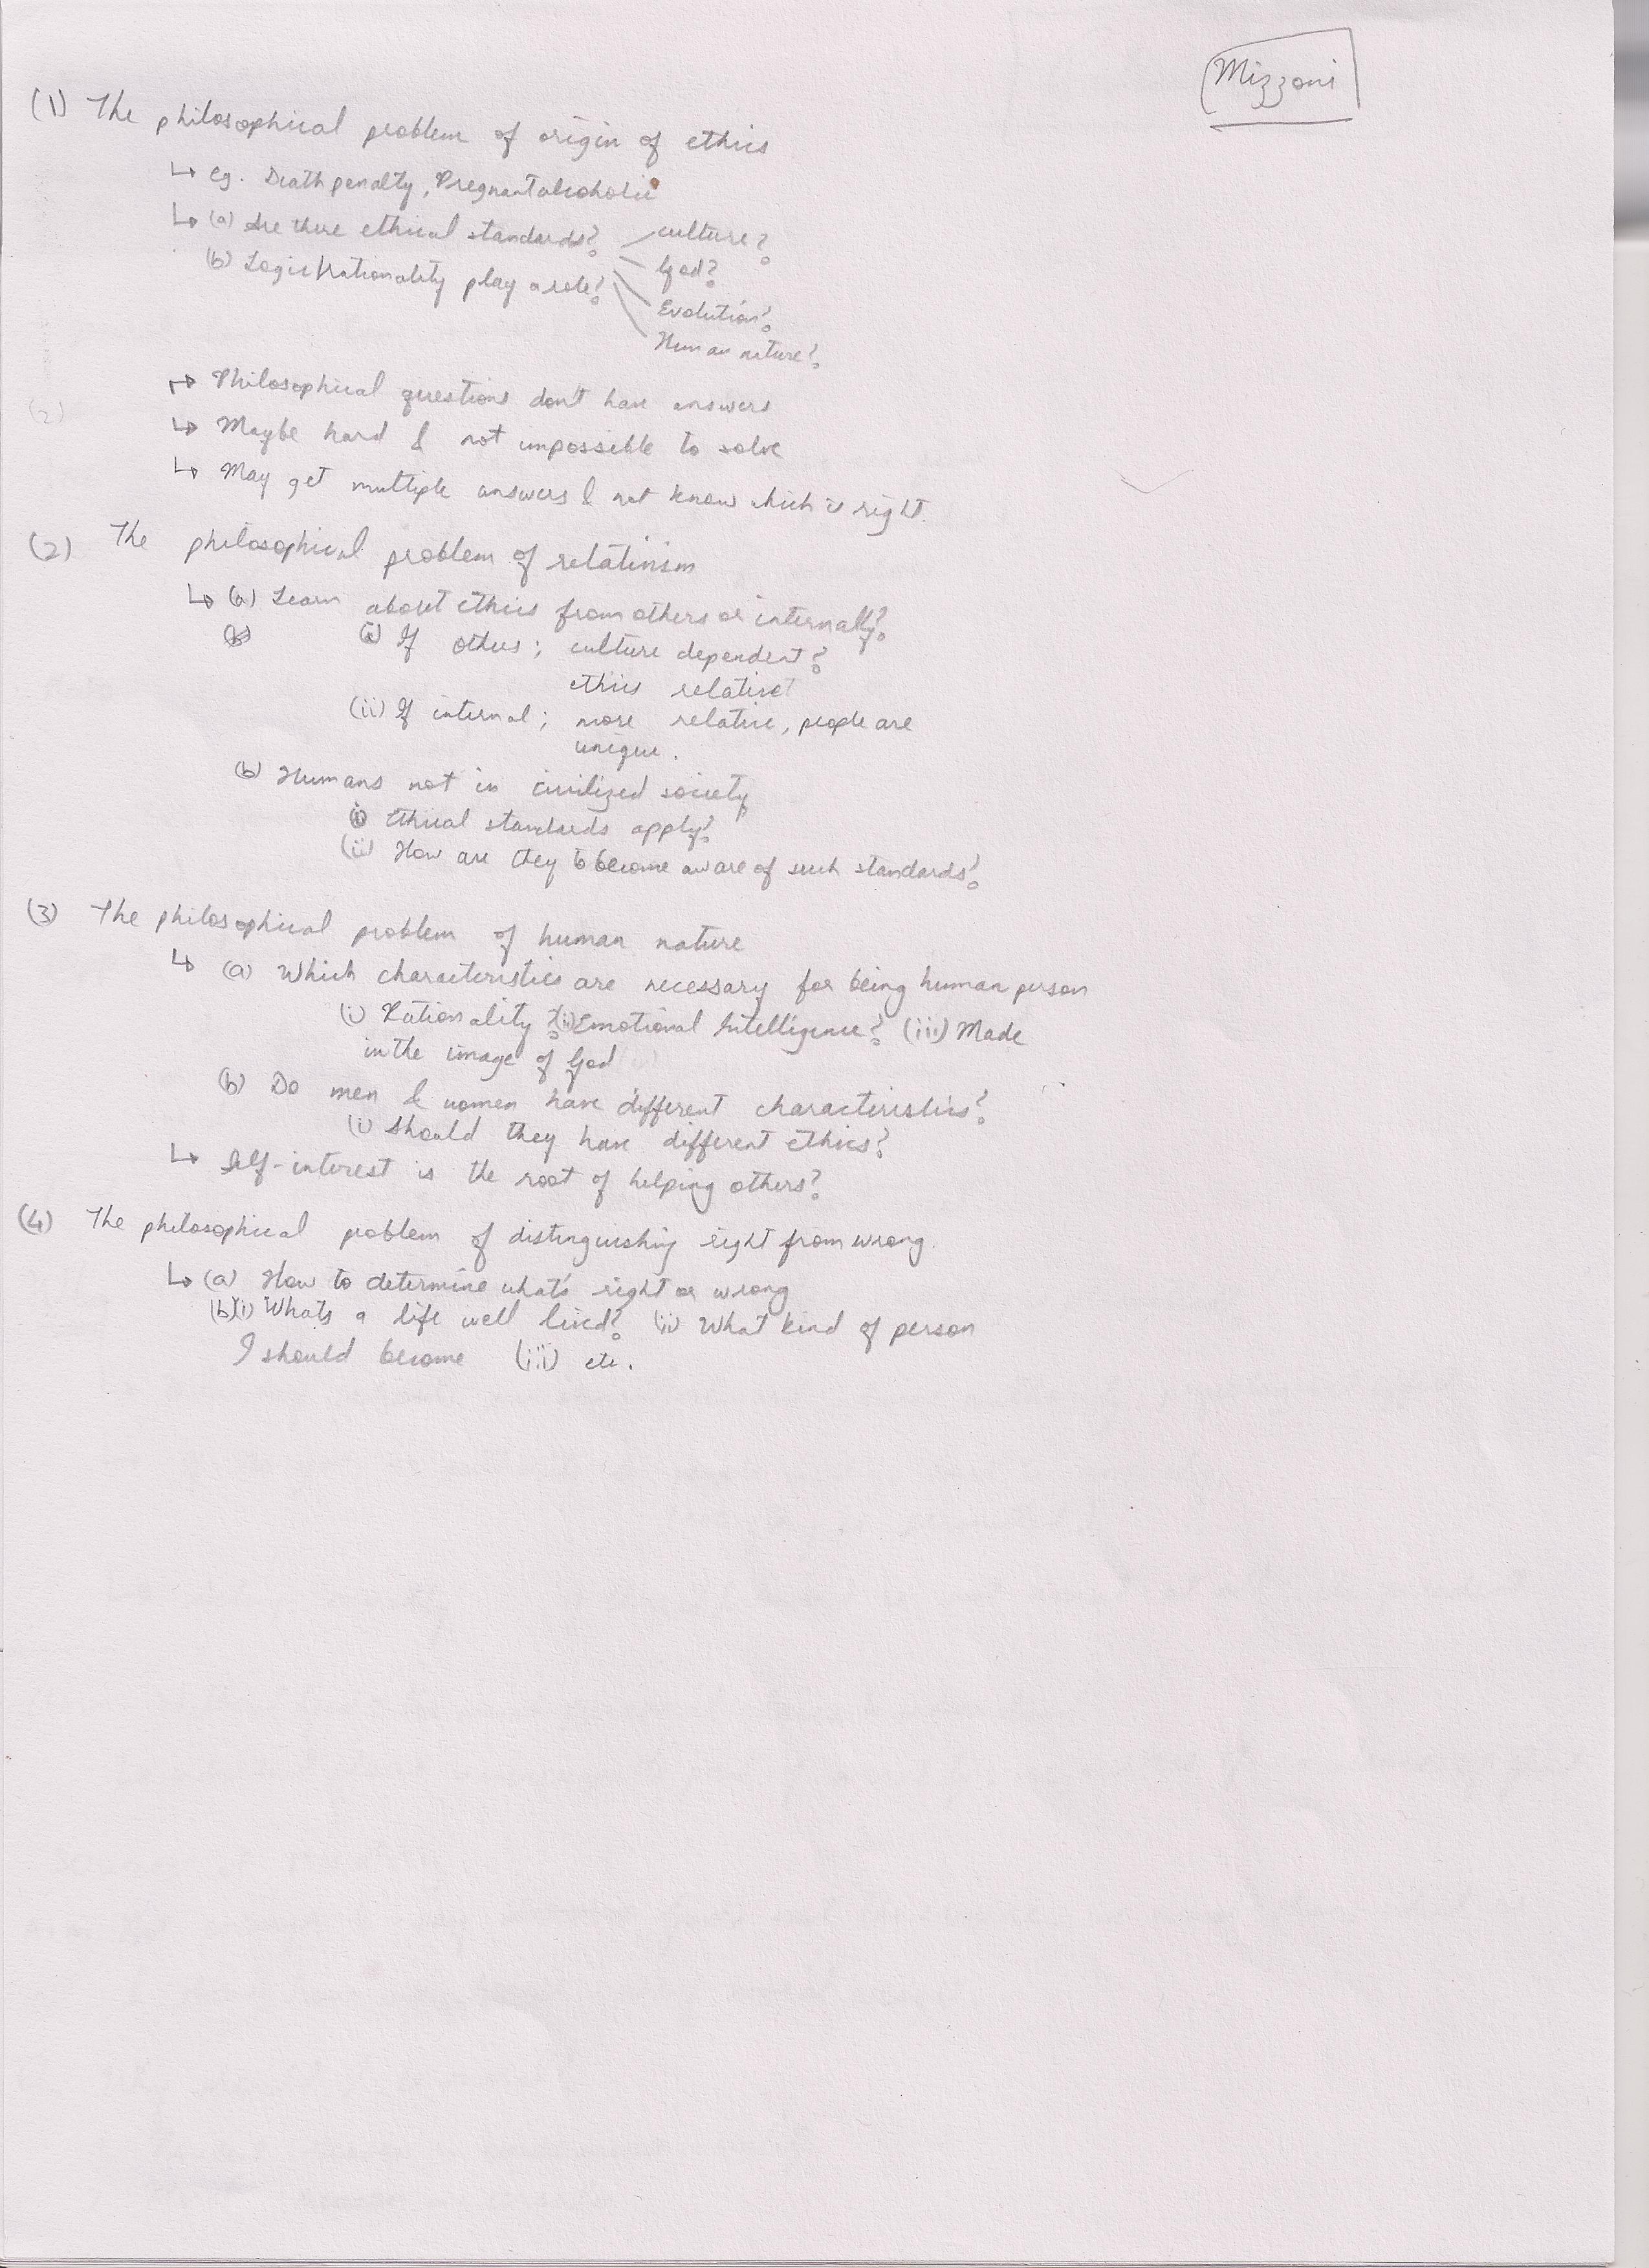 Mizzoni
(1) The philosophical problem of origin of ethics
↳ eg. Death penalty, Pregnant alcoholic
↳ (a) Are there ethical standards? culture?
God?
(b) Logic/rationality play a role?
Evolution?
Human nature?
↳ Philosophical questions don't have answers
(2)
↳ Maybe hard & not impossible to solve
↳ May get multiple answers & not know which is right.
(2) The philosophical problem of relativism
↳ (a) Learn about ethics from others or internally?
(b) (i) If others; culture dependent?
ethics relative?
(ii) If internal; more relative, people are
unique.
(b) Humans not in civilized society
(i) Ethical standards apply?
(ii) How are they to become aware of such standards?
(3) The philosophical problem of human nature
↳ (a) Which characteristics are necessary for being human person
(i) Rationality? (ii) Emotional Intelligence? (iii) Made
in the image of God
(b) Do men & women have different characteristics?
(i) Should they have different ethics?
↳ Self-interest is the root of helping others?
(4) The philosophical problem of distinguishing right from wrong.
↳ (a) How to determine what's right or wrong
(b) (i) Whats a life well lived? (ii) What kind of person
I should become (iii) etc.